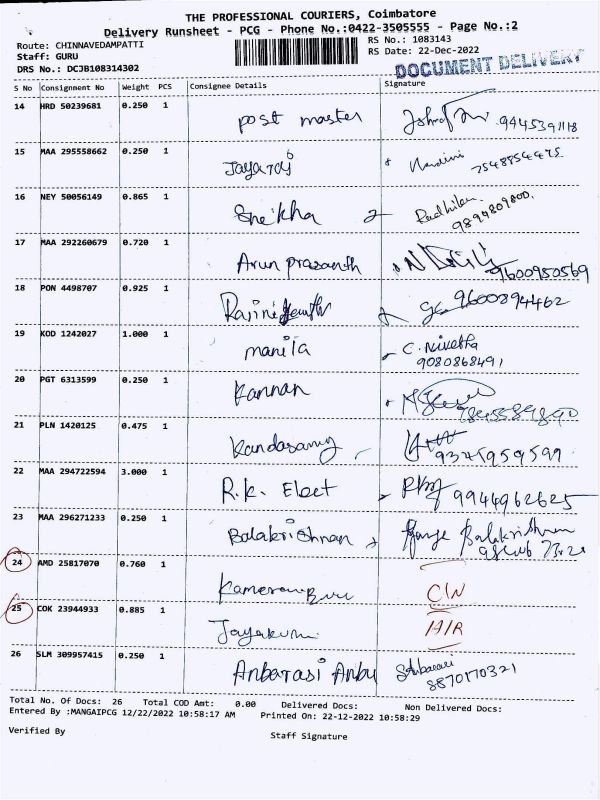 THE PROFESSIONAL COURIERS, Coimbatore
Delivery Runsheet - PCG - Phone No.:0422-3505555 - Page No.:2
Route: CHINNAVEDAMPATTI RS No.: 1083143
Staff: GURU RS Date: 22-Dec-2022
DRS No.: DCJB108314302 DOCUMENT DELIVERY
S No Consignment No Weight PCS Consignee Details Signature
14 HRD 50239681 0.250 1 post master 9445391118
15 MAA 295558662 0.250 1 Jayaraj 7548854475
16 NEY 50056149 0.865 1 Sneikha 9894809800
17 MAA 292260679 0.720 1 Arun prasanth 9600950569
18 PON 4498707 0.925 1 9600394462
19 KOD 1242027 1.000 1 manila C. Nivetha
9080868491
20 PGT 6313599 0.250 1 Kannan
21 PLN 1420125 0.475 1 Kandasamy 9371959599
22 MAA 294722594 3.000 1 R.K. Elect 9944962625
23 MAA 296271233 0.250 1 Balakrishnan Balakrishnan
24 AMD 25817070 0.760 1 C/N
25 COK 23944933 0.885 1 Jayakumi A/R
26 SLM 309957415 0.250 1 Anbarasi Anbu Anbarasi
8870170321
Total No. Of Docs: 26 Total COD Amt: 0.00 Delivered Docs: Non Delivered Docs:
Entered By :MANGAIPCG 12/22/2022 10:58:17 AM Printed On: 22-12-2022 10:58:29
Verified By Staff Signature